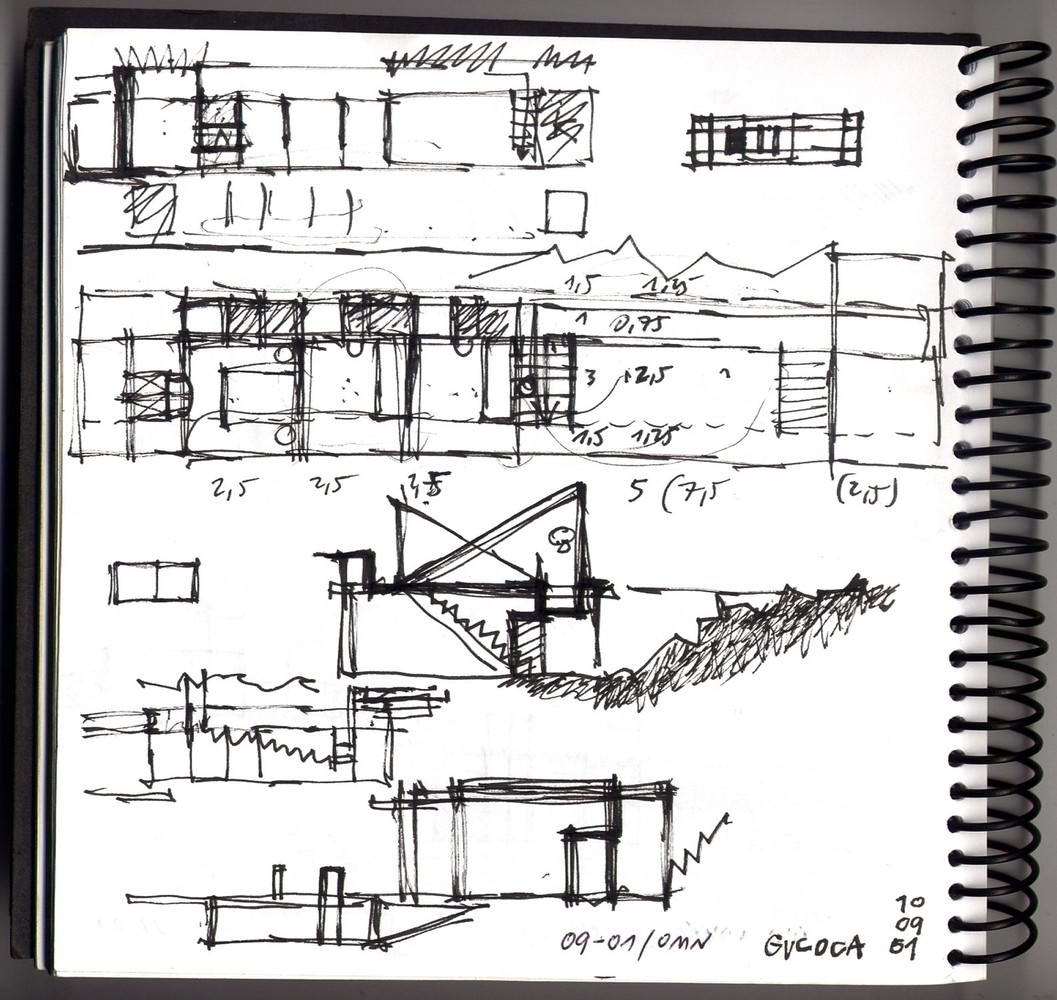 1,5 1,25
1 0,75
3 2,5
1,5 1,25
2,5 2,5 2,5 5 (7,5 (2,5)
10
09
09-01/OMN GVCOCA 51